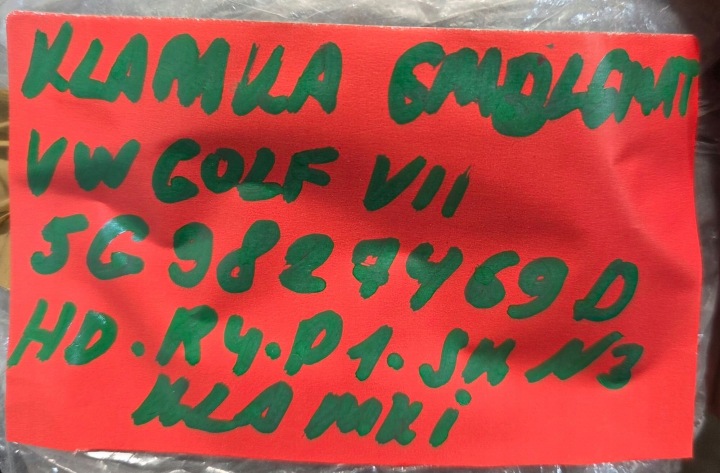 KLAMKA EMBLEMAT
VW GOLF VII
5G9827469D
HD.R4.P1.SK N3
KLAMKi